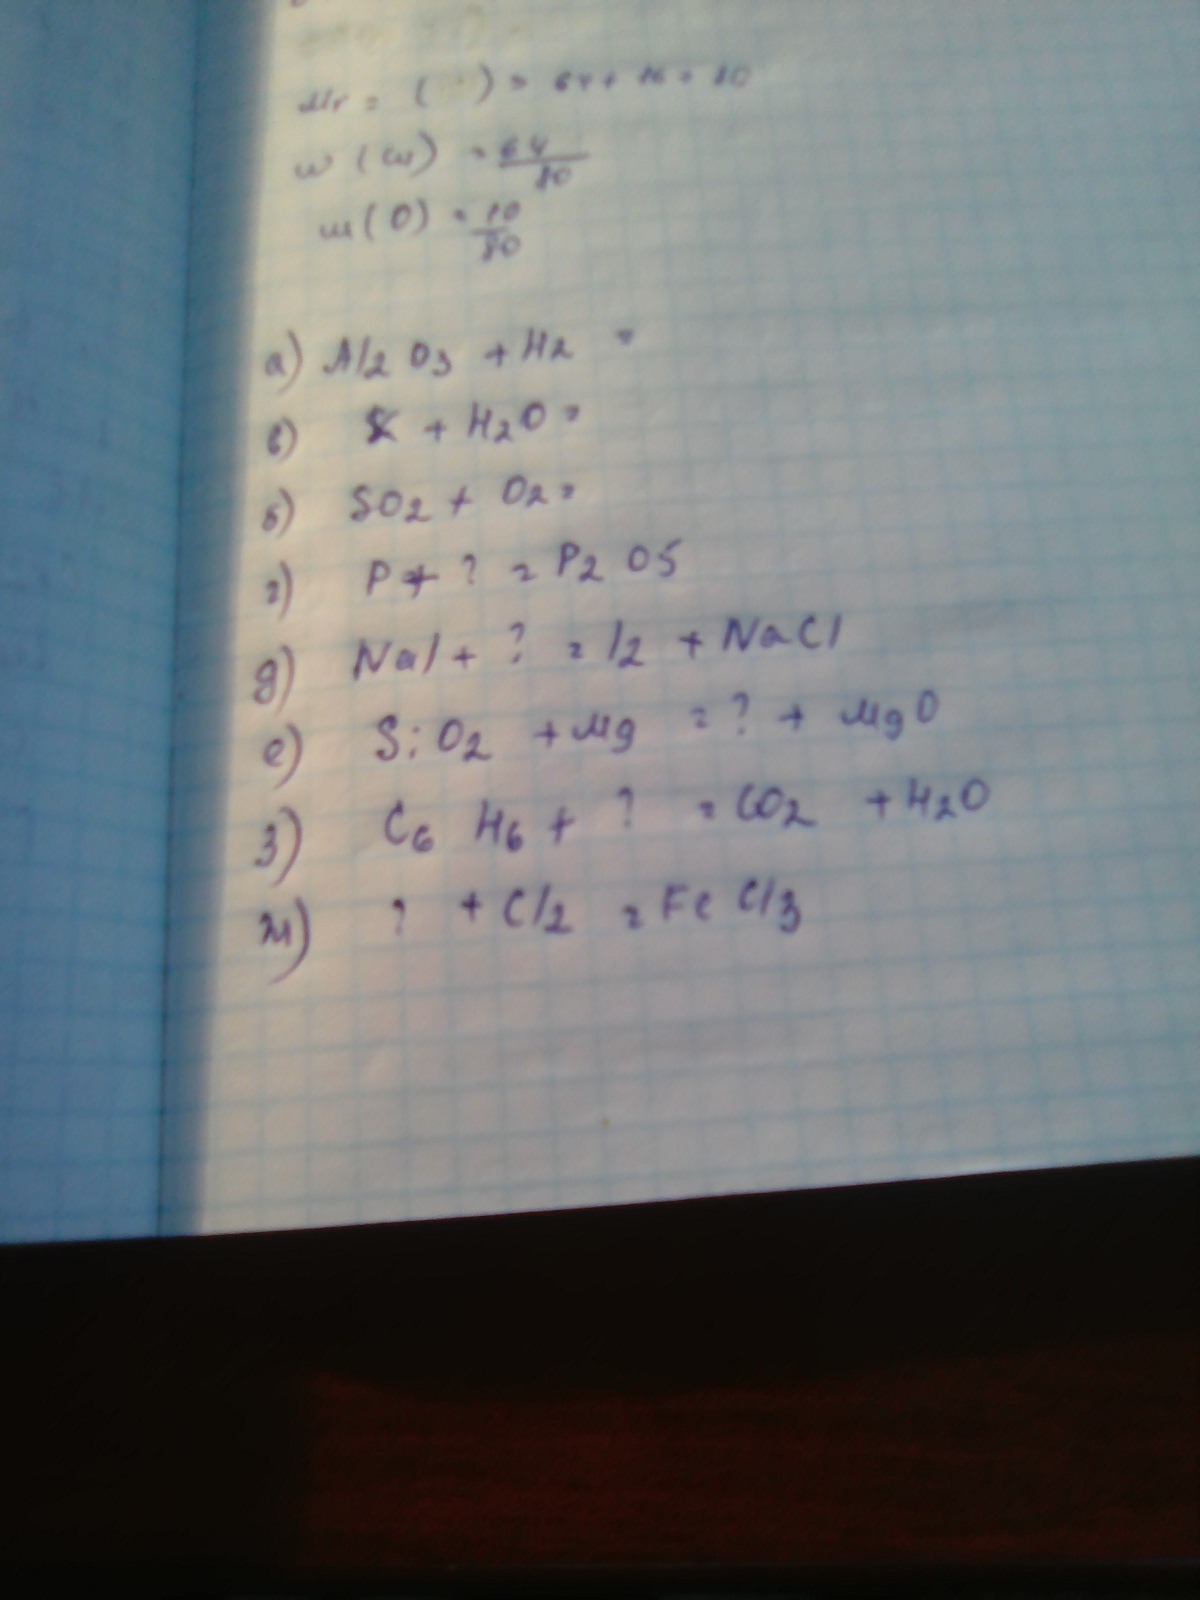 Mr = ( ) = 64 + 16 = 80
w (Cu) = 64/80
w (O) = 10/80
а) Al2 O3 + H2 =
в) K + H2O =
б) SO2 + O2 =
г) P + ? = P2 O5
д) NaI + ? = I2 + NaCl
е) SiO2 + Mg = ? + MgO
з) C6 H6 + ? = CO2 + H2O
ж) ? + Cl2 = Fe Cl3